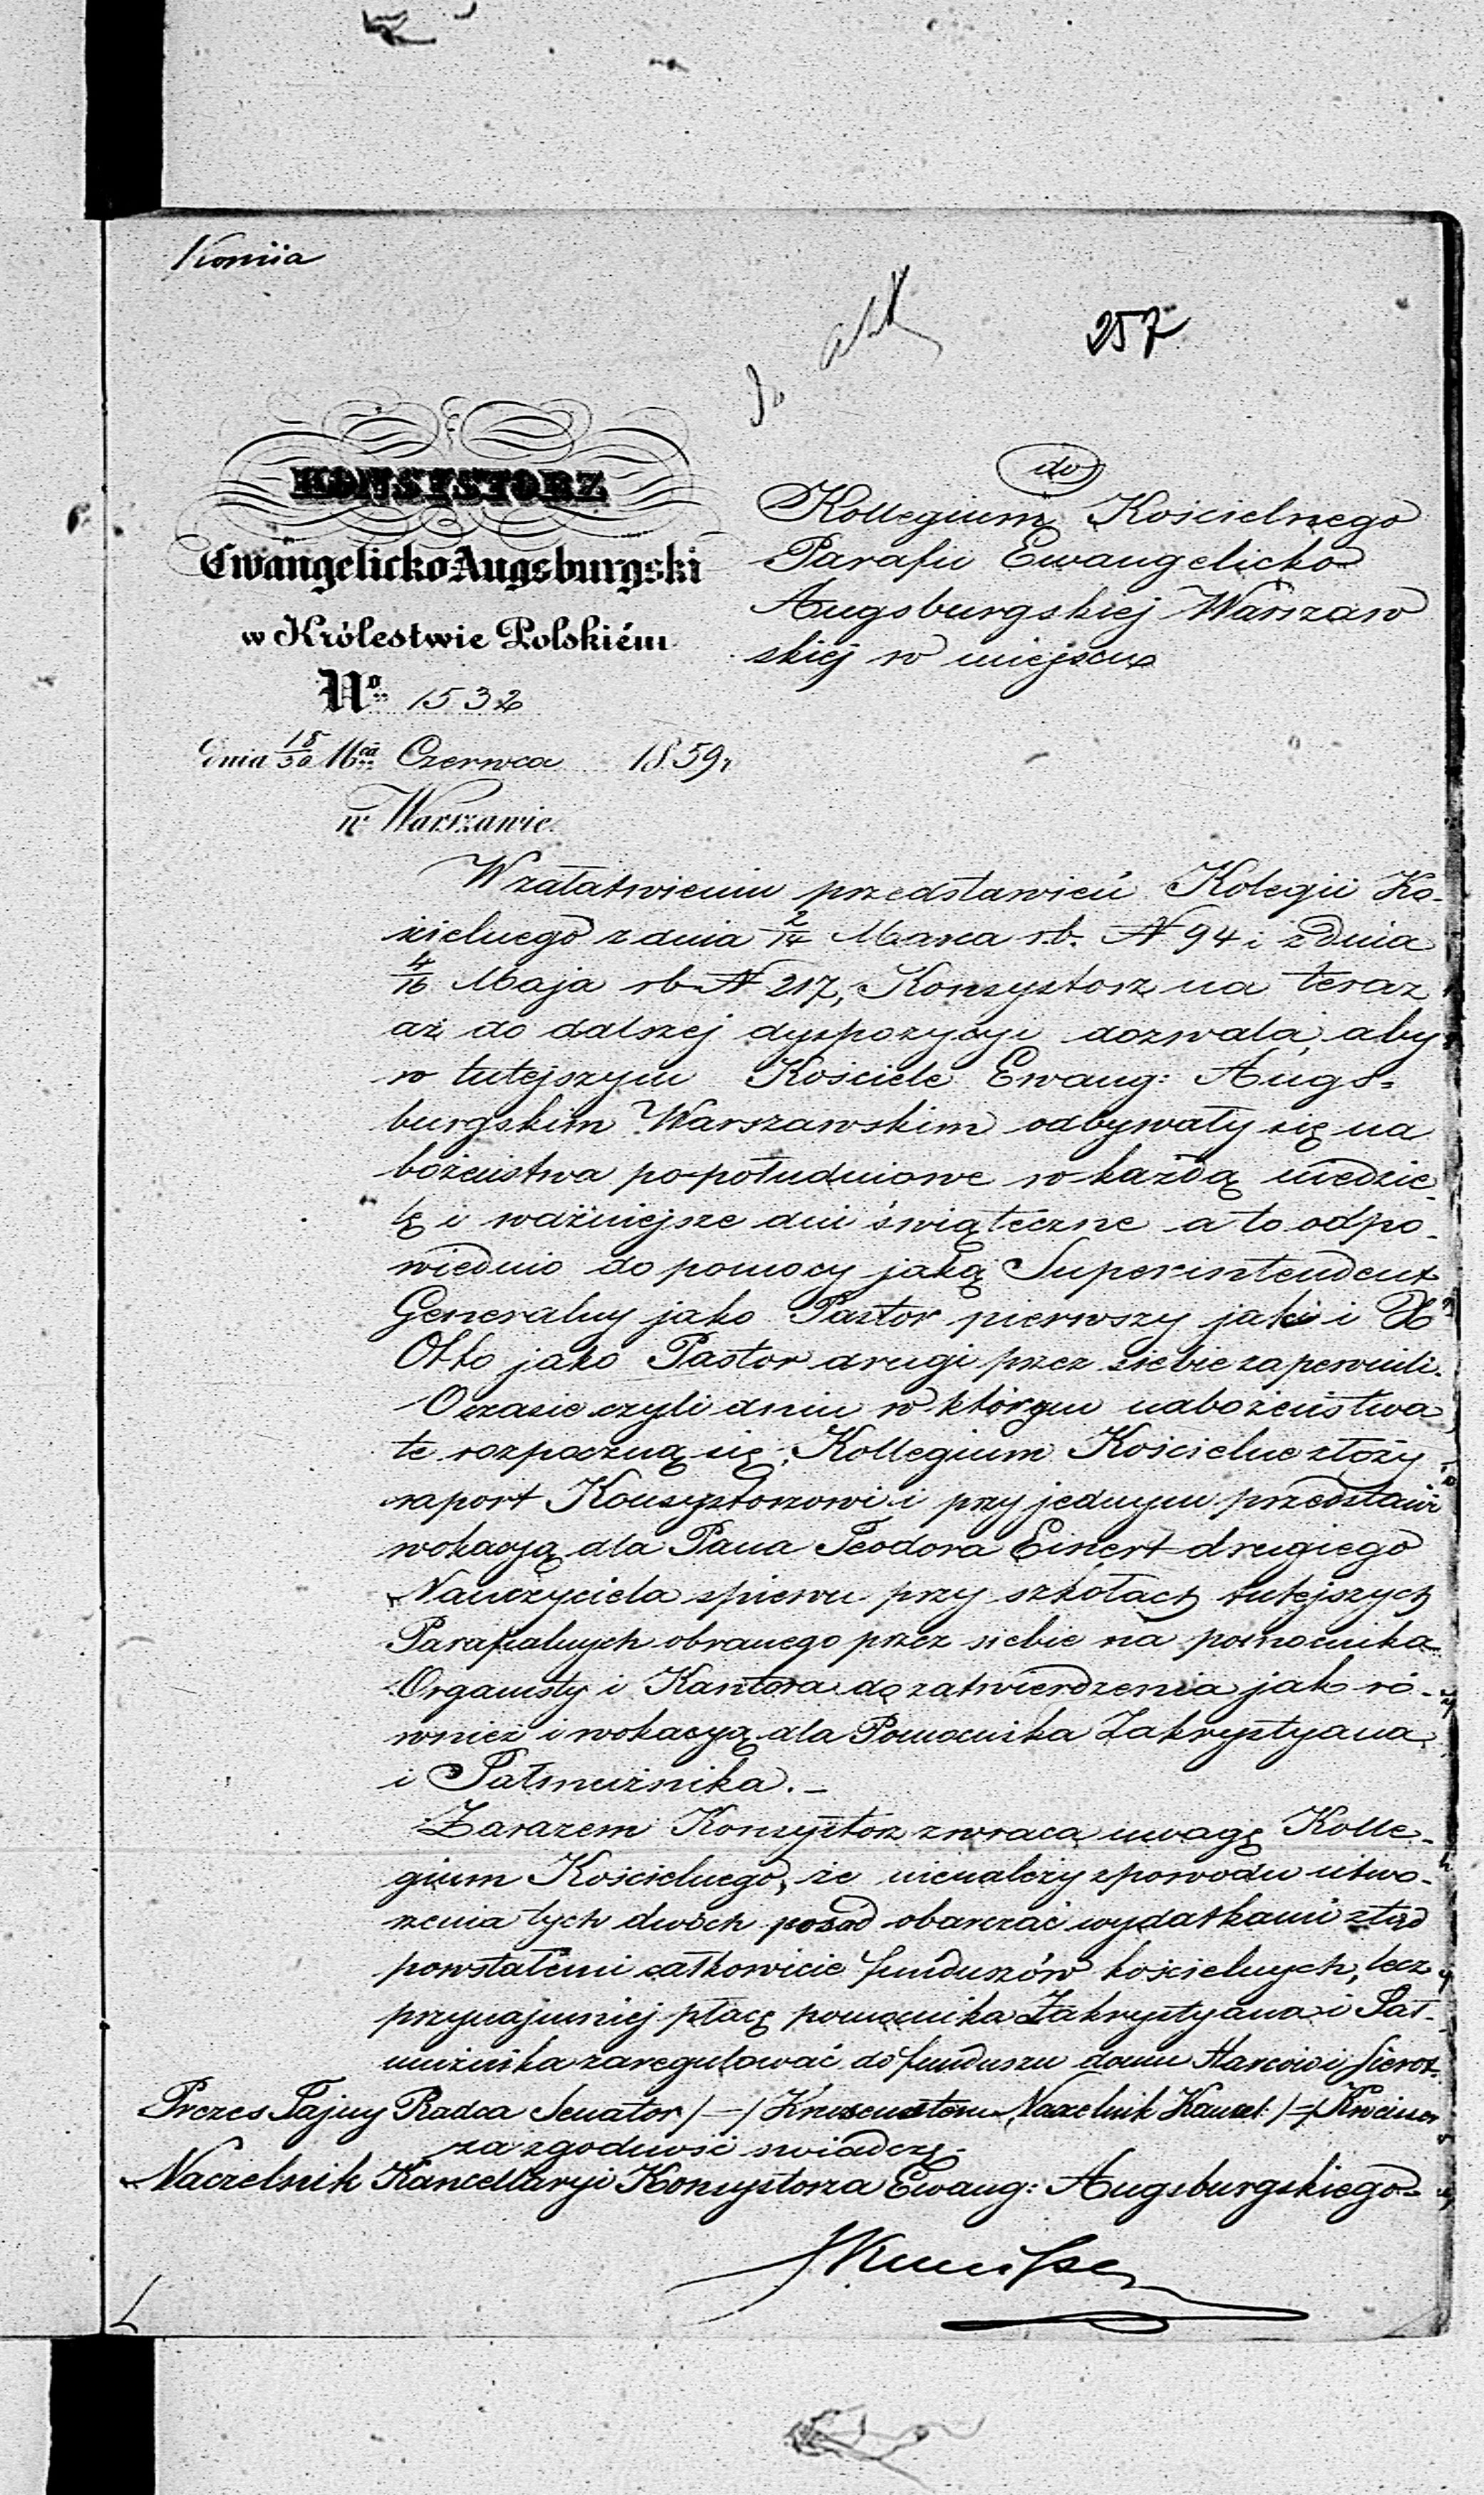 Kopiia
257
KONSYSTORZ
Ewangelicko-Augsburgski
w Królestwie Polskiém
No 1532
dnia 18/30 Mca Czerwca 1859 r
w Warszawie.
do
Kollegium Kościelnego
Parafii Ewangelicko
Augsburgskiej Warszaw
skiej w miejscu
W załatwieniu przedstawień Kolegii Ko-
ścielnego z dnia 2/14 Marca r.b. N 94 i z dnia
4/16 Maja rb N 217, Konsystorz na teraz
aż do dalszej dyspozycyi dozwala, aby
w tutejszym Kościele Ewang: Augs-
burgskim Warszawskim odbywały się na
bożeństwa po-południowe w każdą niedzie
lę i ważniejsze dni świąteczne a to odpo-
wiednio do pomocy jaką Superintendent
Generalny jako Pastor pierwszy jak i X
Otto jako Pastor drugi przez siebie zapewnili.
O czasie czyli dniu w którym nabożeństwa
te rozpoczną się, Kollegium Kościelne złoży
raport Konsystorzowi i przy jednym przedstawi
wokacją dla Pana Teodora Einert drugiego
Nauczyciela spiewu przy szkołach tutejszych
Parafialnych obranego przez siebie na pomocnika
Organisty i Kantora do zatwierdzenia jak ró-
wnież i wokacyą dla Pomocnika Zakrystyana
i Jałmużnika.-
Zarazem Konsystorz zwraca uwagę Kolle-
gium Kościelnego, że nienależy z powodu utwo-
rzenia tych dwóch posad obarczać wydatkami ztąd
powstałemi całkowicie funduszów kościelnych, lecz
przynajmniej płacę pomocnika Zakrystyana i Jał-
mużnika zaregulować do funduszu domu Starców i Sierot.
Prezes Tajny Radca Senator /-/ Kruzenstern Naczelnik Kancel: /-/
za zgodność swiadczę-
Naczelnik Kancellaryi Konsystorza Ewang: Augsburgskiego-